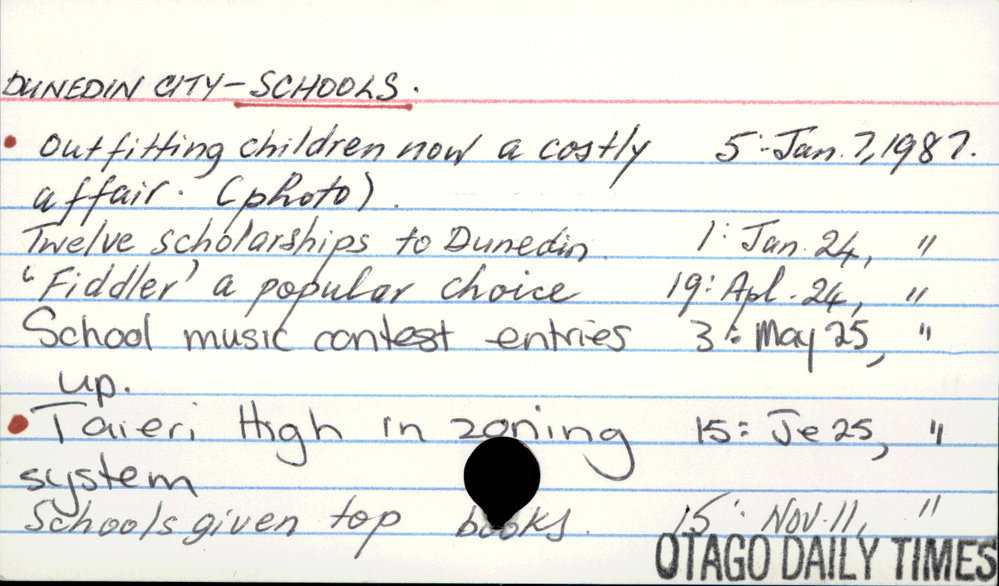 DUNEDIN CITY - SCHOOLS.
• Outfitting children now a costly 5: Jan. 7, 1987.
affair. (photo).
Twelve scholarships to Dunedin. 1: Jan. 24, "
'Fiddler' a popular choice 19: Apl. 24, "
School music contest entries 3: May 25, "
up.
• Taieri High in zoning 15: Je 25, "
system
Schools given top books. 15: Nov. 11, "
OTAGO DAILY TIMES